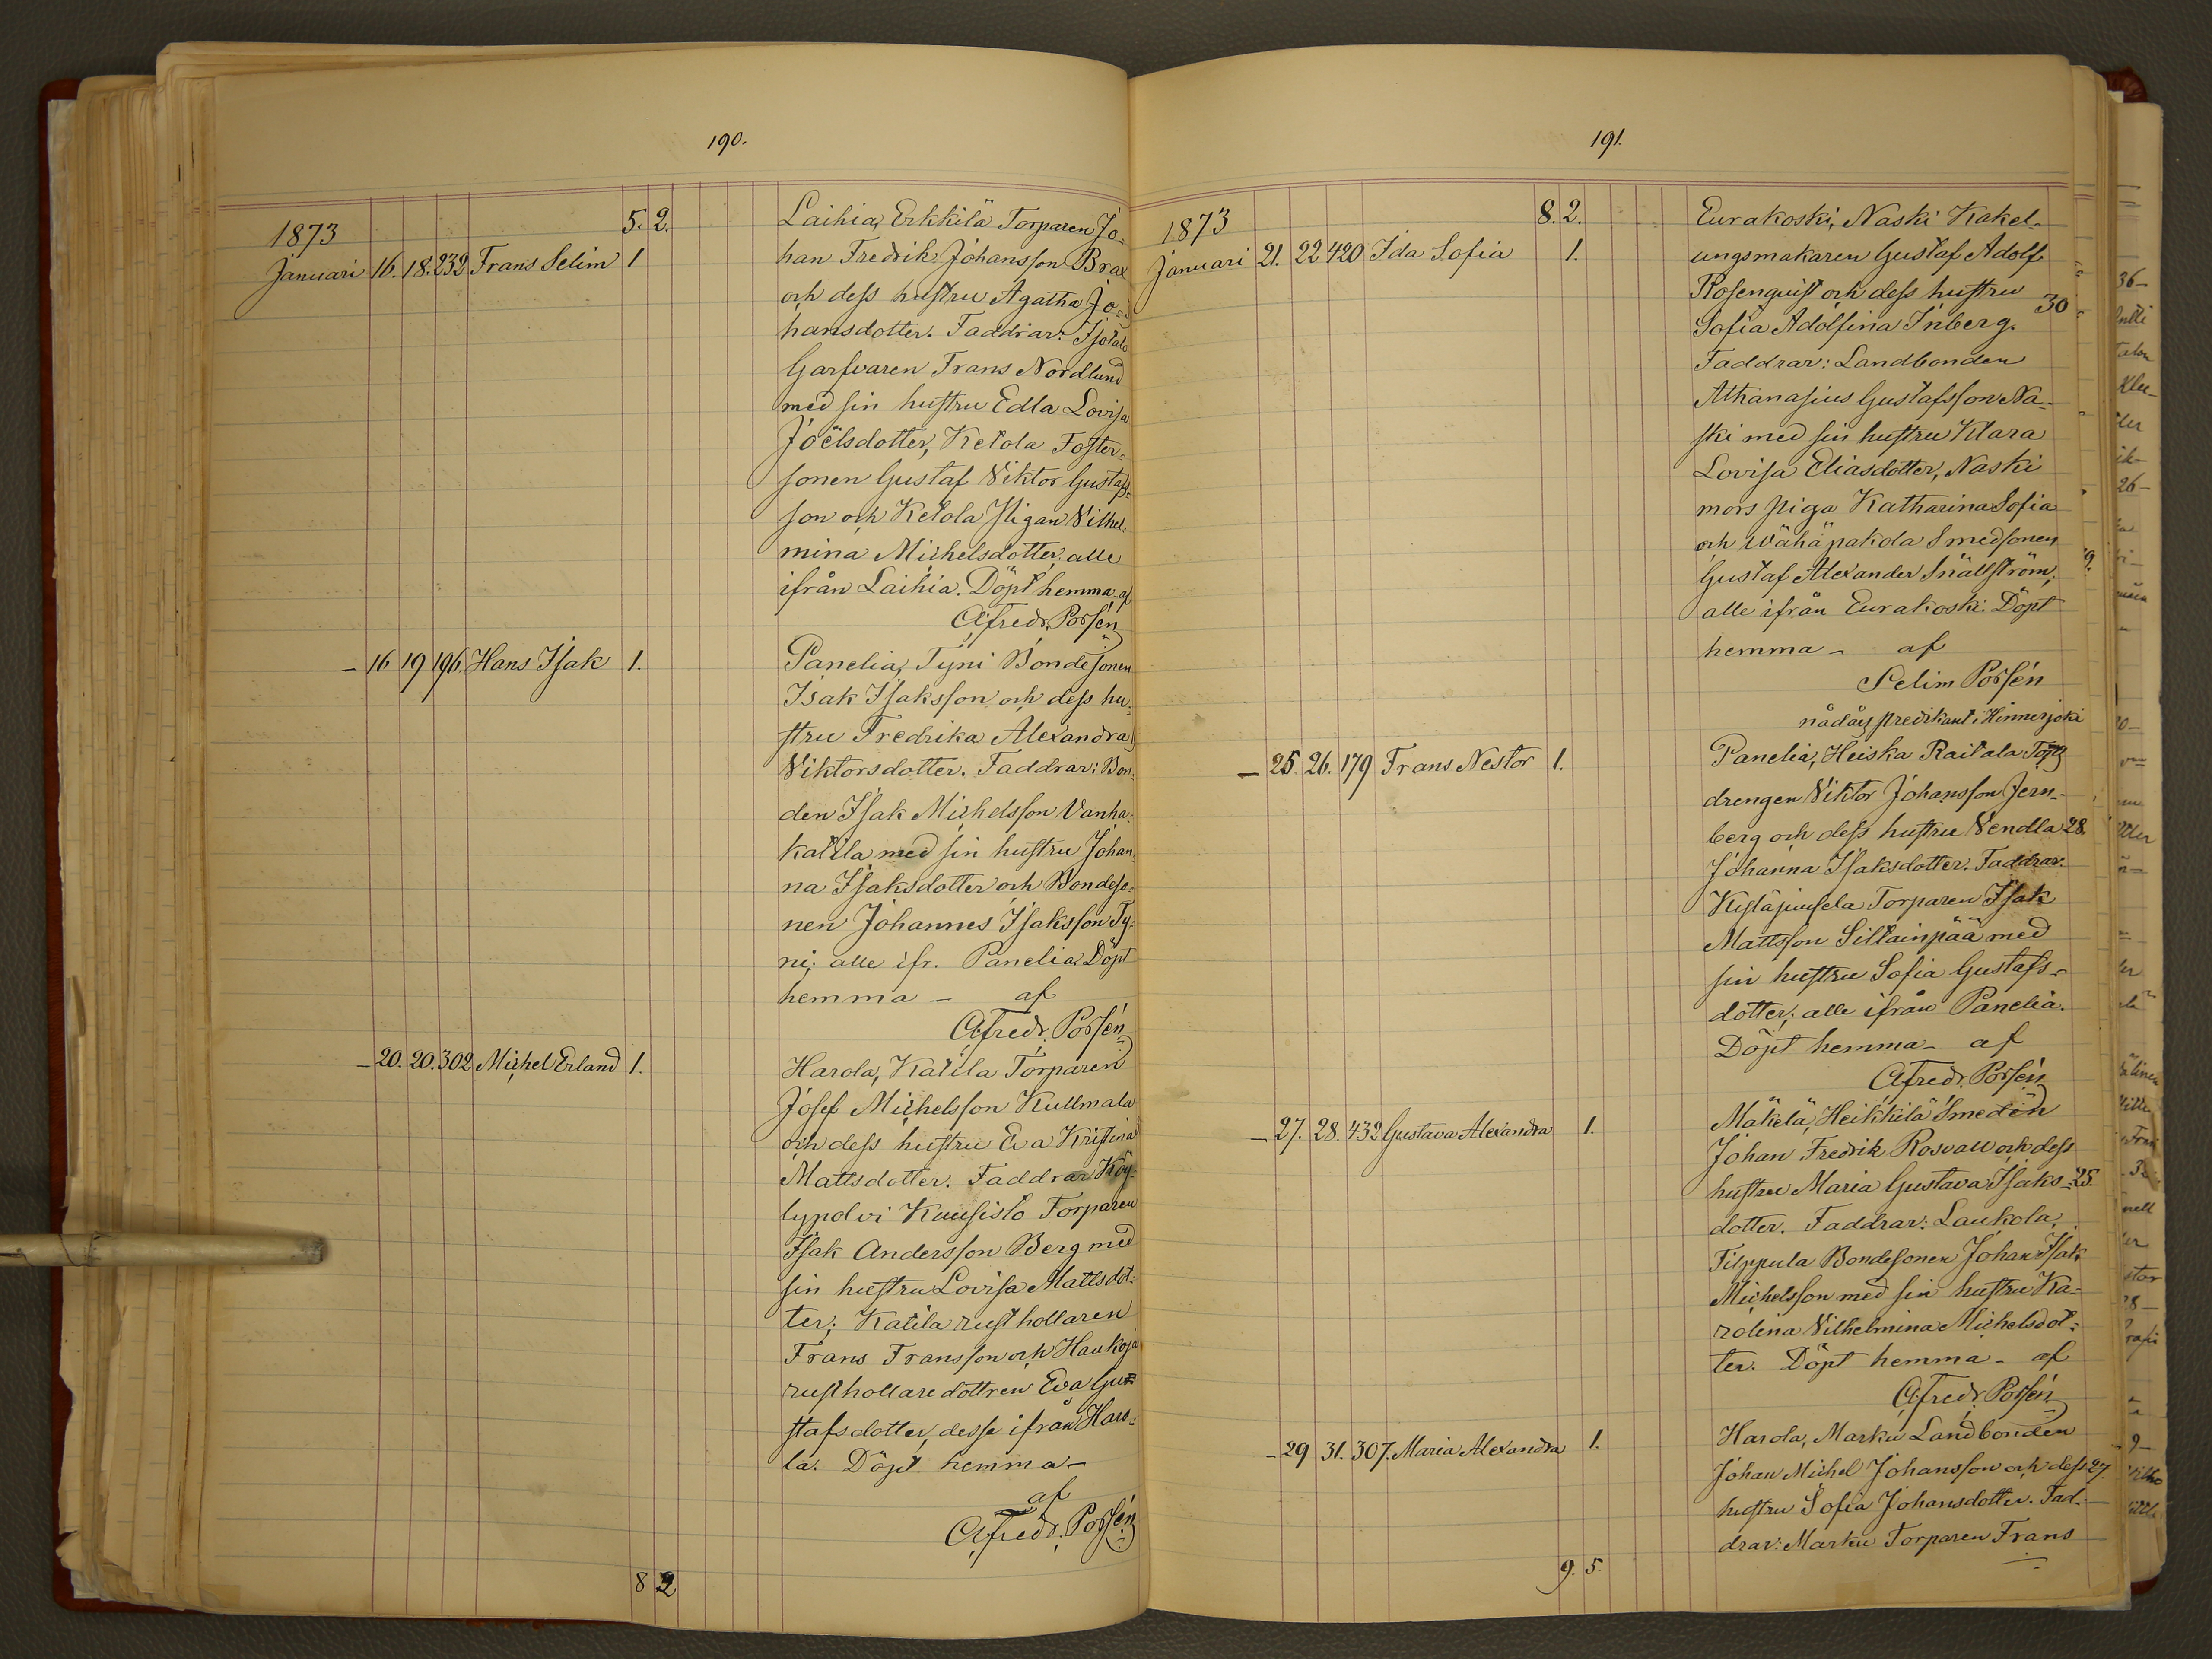 190.
1873 5. 2. Laihia, Erkkilä Torparen Jo-
Januari 16. 18. 232 Frans Selim 1 han Fredrik Johansson Brax
och dess hustru Agatha Jo-
hansdotter. Faddrar: Isotalo
Garfvaren Frans Nordlund
med sin hustru Edla Lovisa
Joëlsdotter, Ketola Foster-
sonen Gustaf Viktor Gustafs-
son och Ketola Pigan Vilhel-
mina Michelsdotter, alle
ifrån Laihia. Döpt hemma af
Alfredr. Porsén
– 16 19 196. Hans Isak 1. Panelia, Tyni Bondesonen
Isak Isaksson och dess hu-
stru Fredrika Alexandra
Viktorsdotter. Faddrar: Bon-
den Isak Michelsson Vanha-
katila med sin hustru Johan-
na Isaksdotter och Bondeso-
nen Johannes Isaksson Ty-
ni; alle ifr. Panelia. Döpt
hemma – af
Alfredr. Porsén
– 20. 20. 302 Michel Erland 1. Harola, Katila Torparen
Josef Michelsson Kullmala
och dess hustru Eva Kristina
Mattsdotter. Faddrar Köy-
lypolvi Kuusisto Torparen
Isak Andersson Berg med
sin hustru Lovisa Mattsdot-
ter; Katila rusthollaren
Frans Fransson och Haukoja
rusthollaredottren Eva Gu-
stafsdotter, desse ifrån Haro-
la. Döpt hemma –
af
Alfredr. Porsén
8 2
191.
1873 8. 2. Eurakoski, Naski Kakel-
Januari 21. 22 420 Ida Sofia 1. ungsmakaren Gustaf Adolf
Rosenquist och dess hustru 30
Sofia Adolfina Inberg.
Faddrar: Landbonden
Athanasius Gustafsson Na-
ski med sin hustru Klara
Lovisa Eliasdotter, Naski
mors Piga Katharina Sofia
och Wähäpakola Smedsonen
Gustaf Alexander Snällström,
alle ifrån Eurakoski. Döpt
hemma – af
Selim Porsén
nådårspredikant i Hinnerjoki
– 25. 26. 179 Frans Nestor 1. Panelia, Heiska Raitala
drengen Viktor Johansson Jern-
berg och dess hustru Vendla 28.
Johanna Isaksdotter. Faddrar.
Torparen Isak
Mattsson Siltainpää med
sin hustru Sofia Gustafs-
dotter; alle ifrån Panelia.
Döpt hemma – af
Alfredr. Porsén
– 27. 28. 432 Gustava Alexandra 1. Mäkelä, Heikkilä Smeden
Johan Fredrik Rosvall och dess
hustru Maria Gustava Isaks- 25.
dotter. Faddrar: Laukola,
Filppula Bondesonen Johan Isak
Michelsson med sin hustru Ka-
rolina Vilhelmina Michelsdot-
ter. Döpt hemma – af
Alfredr. Porsén
– 29 31. 307. Maria Alexandra 1. Harola, Marku Landbonden
Johan Michel Johansson och dess 27.
hustru Sofia Johansdotter. Fad-
drar: Marku Torparen Frans
9. 5.